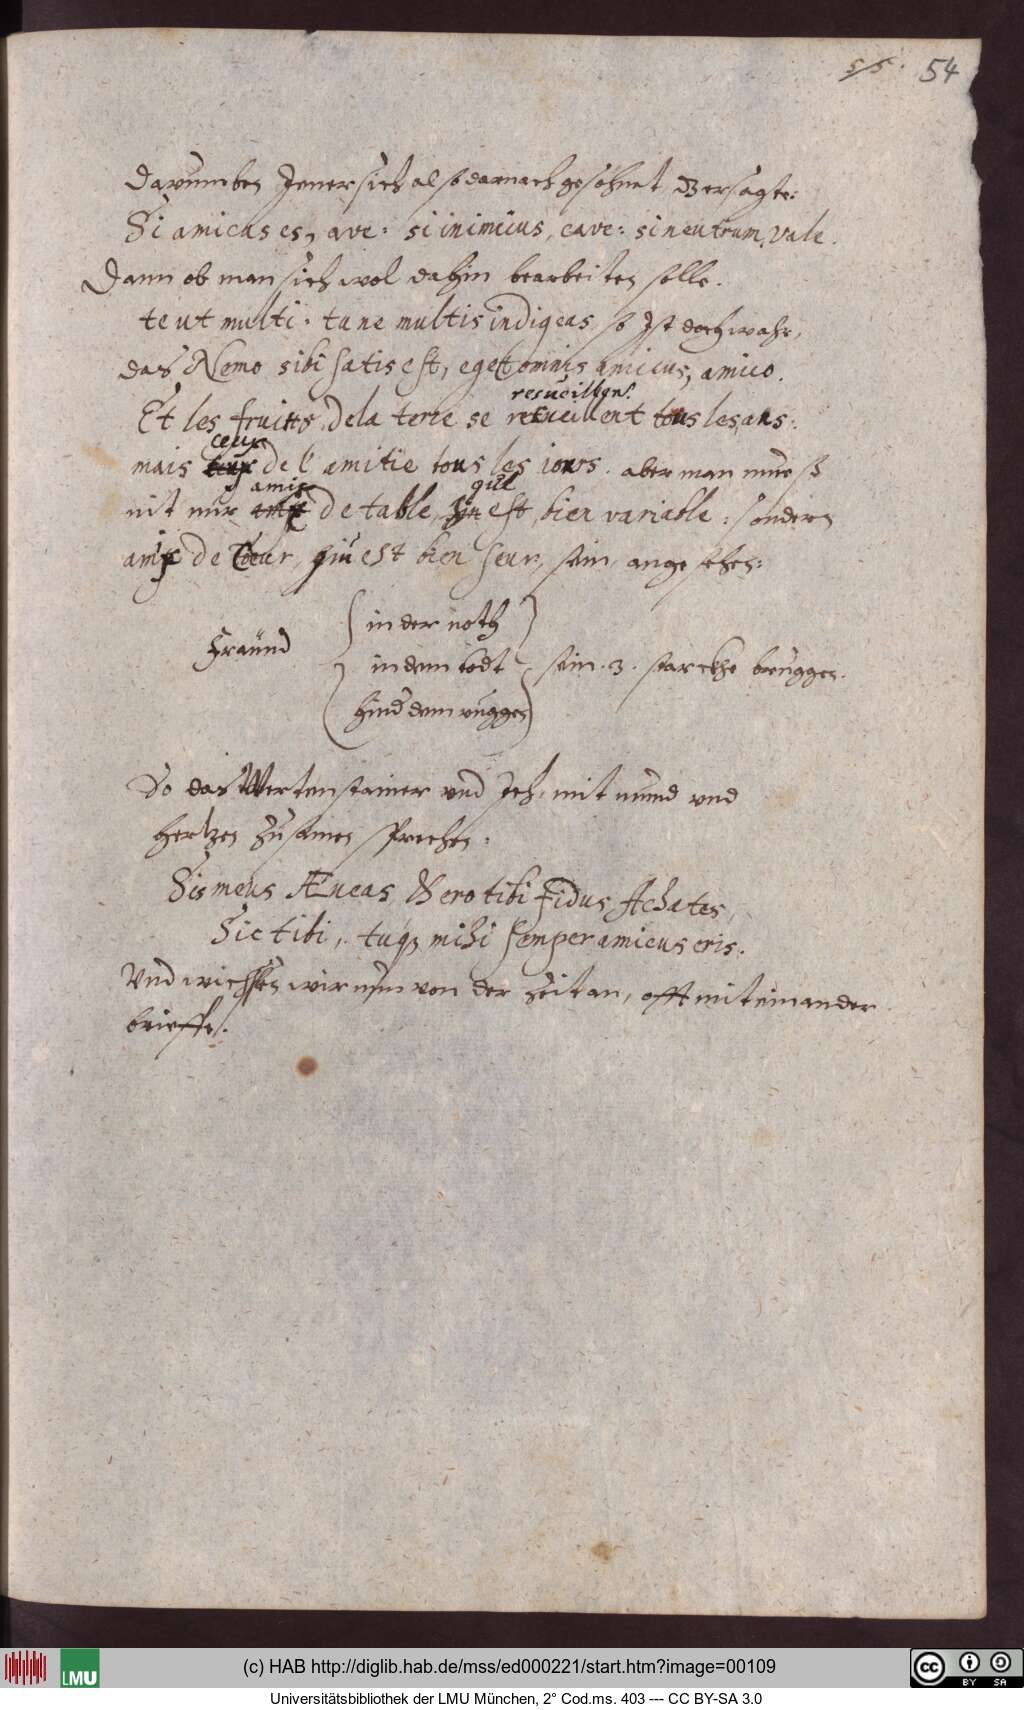 55. 54
Darumben Jener sich also darnach gesöhnet dz er sagte:
Si amicus es, ave: si inimicus, cave: si neutrum, vale.
Dann ob man sich wol dahin bearbeiten solle.
te ut multi: tu ne multis indigeas, so Ist doch wahr,
das Nemo sibi satis est, eget omnis amicus, amico.
recueillent
Et les fruitts, de la terre se recueillent tous les ans:
ceux
mais ceux de l' amitie tous les iours. aber man mues
amis qui
nit nur de table, qui est, bien variable: sondern
amys de Coeur, qui est bien seur, sein angesehen:
in der noth
Fraünd in dem todt sein .3. starckhe bruggen.
hind dem ruggen
So das Wertenstainer und Ich, mit mund und
hertzen zusamen sprechen:
Sis meus Æneas Ero tibi fidus Achates,
Sic tibi, tuq3 mihi semper amicus eris.
Und wichslen wir nun von der Zeit an, offt mit einander
brieffe.
(c) HAB http://diglib.hab.de/mss/ed000221/start.htm?image=00109
LMU
cc BY SA
Universitätsbibliothek der LMU München, 2° Cod.ms. 403 --- CC BY-SA 3.0